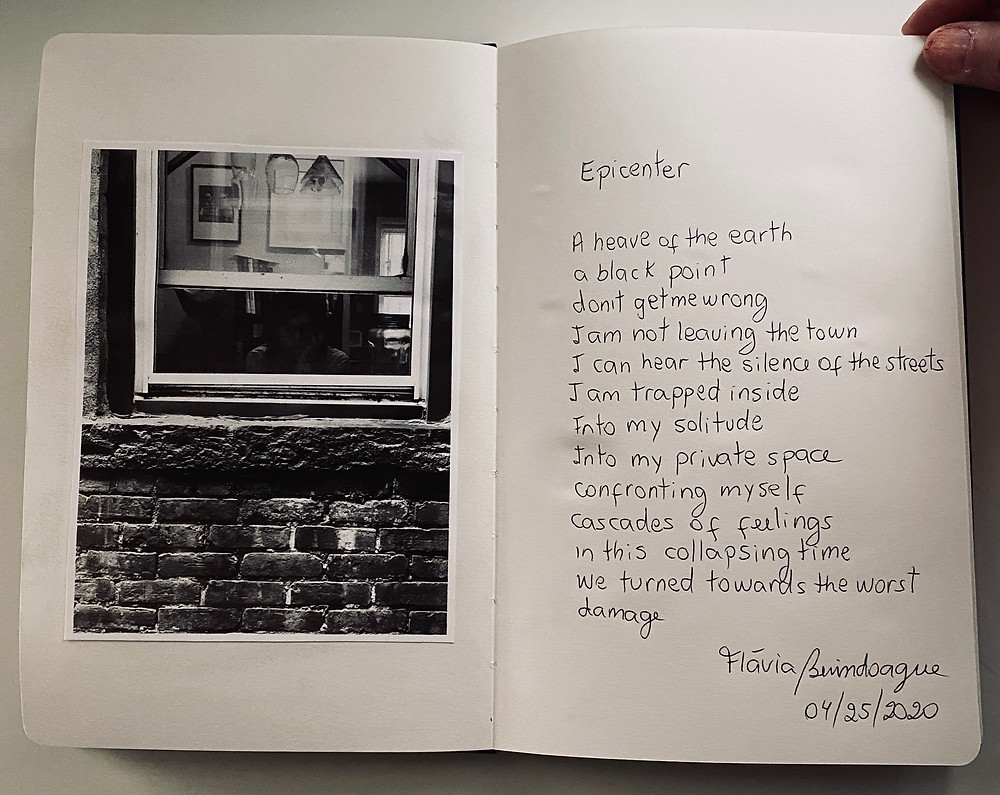 Epicenter
A heave of the earth
a black point
don't get me wrong
I am not leaving the town
I can hear the silence of the streets
I am trapped inside
Into my solitude
Into my private space
confronting myself
cascades of feelings
in this collapsing time
we turned towards the worst
damage
Flávia
04/25/2020